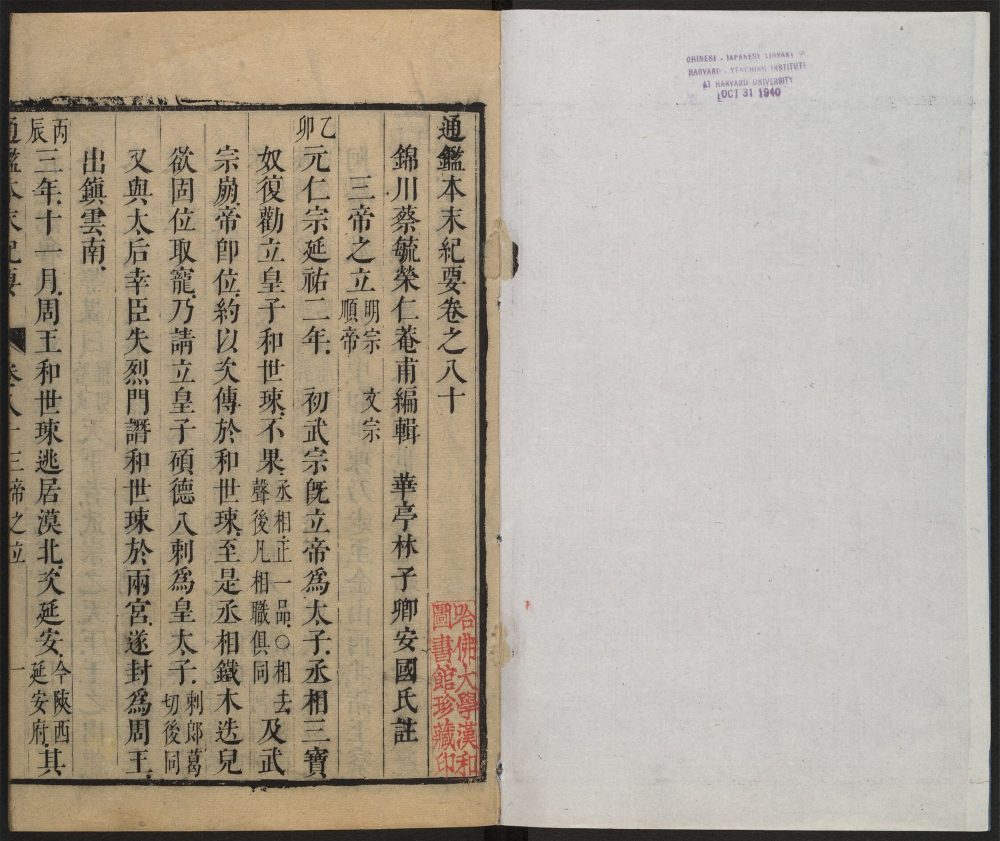 CHINESE - JAPANESE LIBRARY OF
HARVARD - YENCHING INSTITUTE
AT HARVARD UNIVERSITY
OCT 31 1940
通鑑本末紀要卷之八十
錦川蔡毓榮仁菴甫編輯 華亭林子卿安國氏註
三帝之立明宗 文宗順帝
乙卯元仁宗延祐二年 初武宗旣立帝爲太子丞相三寶
奴復勸立皇子和世㻋不果丞相正一品〇相去聲後凡相職俱同及武
宗崩帝卽位約以次傳於和世㻋至是丞相鐵木迭兒
欲固位取寵乃請立皇子碩德八剌爲皇太子剌郎葛切後同
又與太后幸臣失烈門譖和世㻋於兩宮遂封爲周王
出鎮雲南
丙辰三年十一月周王和世㻋逃居漠北次延安今陝西延安府其
通鑑本末紀要 卷八十 三帝之立 一
哈佛大學漢和
圖書館珍藏印